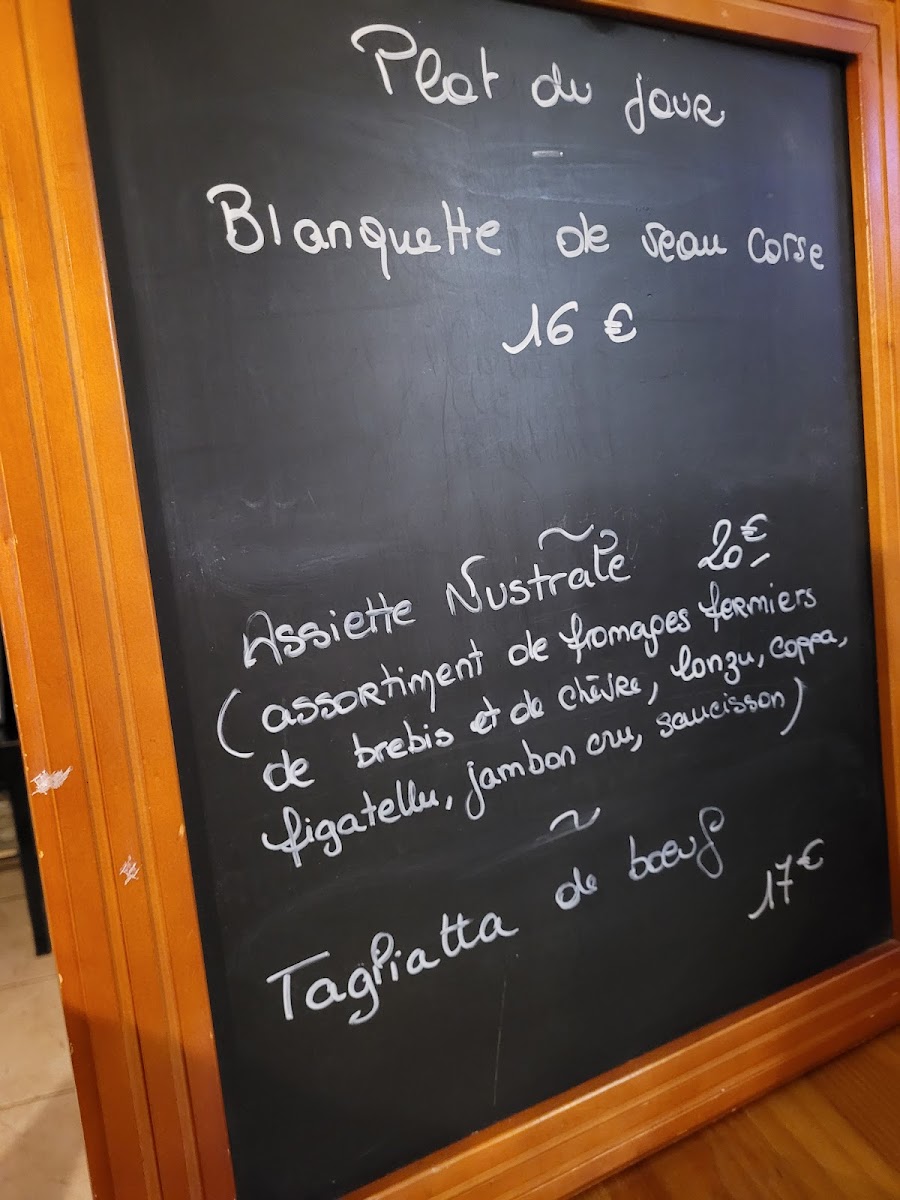 Plat du jour
Blanquette de veau corse
16 €
Assiette Nustrale 20€
(assortiment de fromages fermiers
de brebis et de chèvre, lonzu, coppa,
figatellu, jambon cru, saucisson)
Tagliatta de bœuf
17€